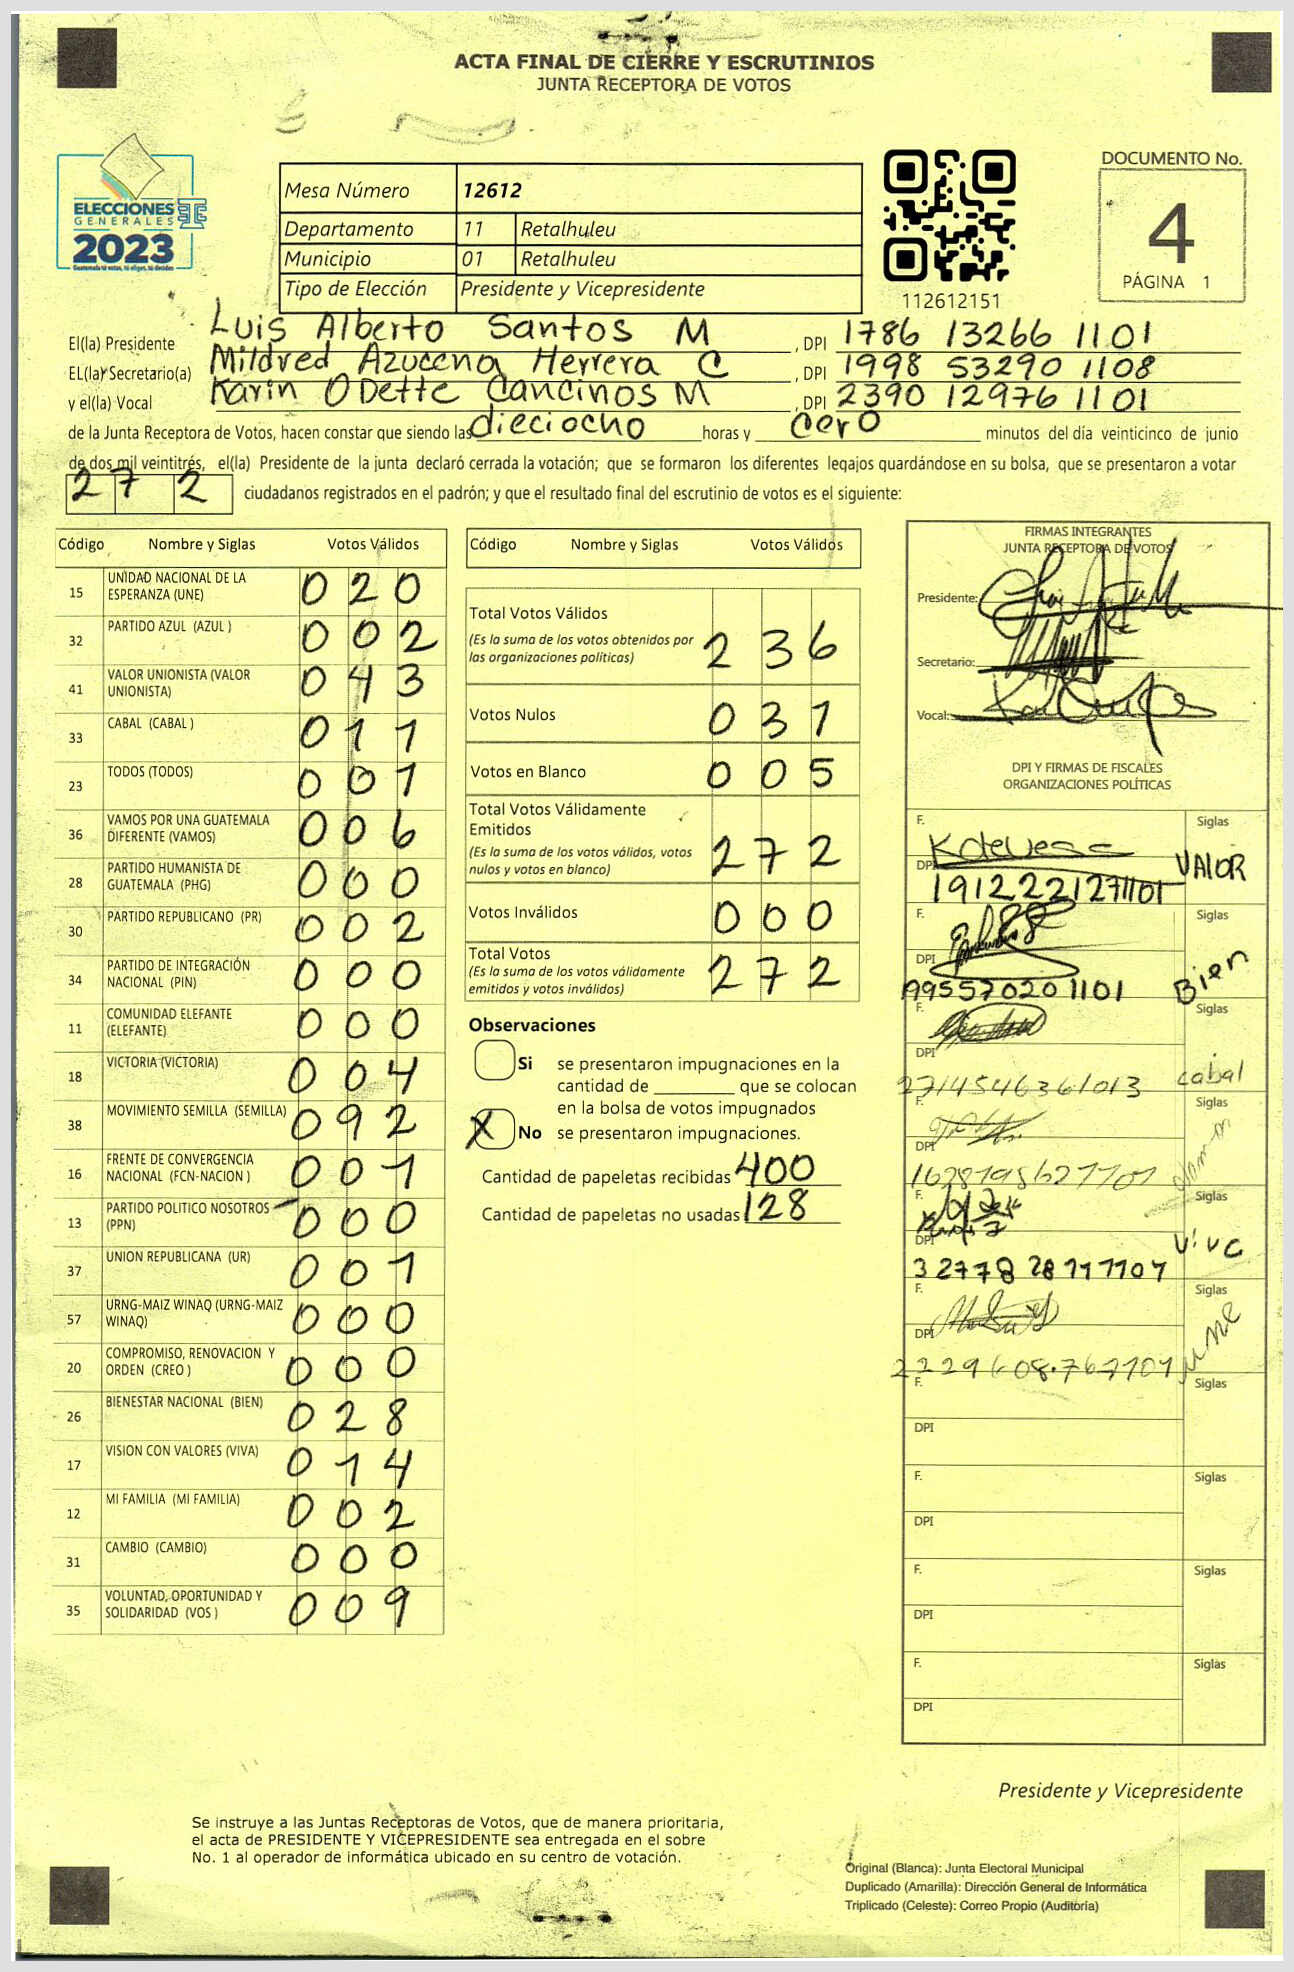 ACTA FINAL DE CIERRE Y ESCRUTINIOS
JUNTA RECEPTORA DE VOTOS
ELECCIONES
GENERALES
2023
Guatemala tú votas, tú eliges, tú decides
Mesa Número 12612
Departamento 11 Retalhuleu
Municipio 01 Retalhuleu
Tipo de Elección Presidente y Vicepresidente
112612151
DOCUMENTO No.
4
PÁGINA 1
El(la) Presidente Luis Alberto Santos M , DPI 1786 13266 1101
EL(la) Secretario(a) Mildred Azucena Herrera C , DPI 1998 53290 1108
y el(la) Vocal Karin ODette Cancinos M , DPI 2390 12976 1101
de la Junta Receptora de Votos, hacen constar que siendo las dieciocho horas y cero minutos del día veinticinco de junio
de dos mil veintitrés, el(la) Presidente de la junta declaró cerrada la votación; que se formaron los diferentes legajos guardándose en su bolsa, que se presentaron a votar
272 ciudadanos registrados en el padrón; y que el resultado final del escrutinio de votos es el siguiente:
Código Nombre y Siglas Votos Válidos
15 UNIDAD NACIONAL DE LA ESPERANZA (UNE) 020
32 PARTIDO AZUL (AZUL ) 002
41 VALOR UNIONISTA (VALOR UNIONISTA) 043
33 CABAL (CABAL ) 011
23 TODOS (TODOS) 001
36 VAMOS POR UNA GUATEMALA DIFERENTE (VAMOS) 006
28 PARTIDO HUMANISTA DE GUATEMALA (PHG) 000
30 PARTIDO REPUBLICANO (PR) 002
34 PARTIDO DE INTEGRACIÓN NACIONAL (PIN) 000
11 COMUNIDAD ELEFANTE (ELEFANTE) 000
18 VICTORIA (VICTORIA) 004
38 MOVIMIENTO SEMILLA (SEMILLA) 092
16 FRENTE DE CONVERGENCIA NACIONAL (FCN-NACION ) 001
13 PARTIDO POLITICO NOSOTROS (PPN) 000
37 UNION REPUBLICANA (UR) 001
57 URNG-MAIZ WINAQ (URNG-MAIZ WINAQ) 000
20 COMPROMISO, RENOVACION Y ORDEN (CREO ) 000
26 BIENESTAR NACIONAL (BIEN) 028
17 VISION CON VALORES (VIVA) 014
12 MI FAMILIA (MI FAMILIA) 002
31 CAMBIO (CAMBIO) 000
35 VOLUNTAD, OPORTUNIDAD Y SOLIDARIDAD (VOS ) 009
Código Nombre y Siglas Votos Válidos
Total Votos Válidos
(Es la suma de los votos obtenidos por
las organizaciones políticas) 236
Votos Nulos 031
Votos en Blanco 005
Total Votos Válidamente
Emitidos
(Es la suma de los votos válidos, votos
nulos y votos en blanco) 272
Votos Inválidos 000
Total Votos
(Es la suma de los votos válidamente
emitidos y votos inválidos) 272
Observaciones
Si se presentaron impugnaciones en la
cantidad de ________ que se colocan
en la bolsa de votos impugnados
X No se presentaron impugnaciones.
Cantidad de papeletas recibidas 400
Cantidad de papeletas no usadas 128
FIRMAS INTEGRANTES
JUNTA RECEPTORA DE VOTOS
Presidente:
Secretario:
Vocal:
DPI Y FIRMAS DE FISCALES
ORGANIZACIONES POLÍTICAS
F. Siglas
DPI 1912221271101 VALOR
F. Siglas
DPI 1995570201101 Bien
F. Siglas
DPI 2714546361013 cabal
F. Siglas
DPI
F. Siglas
DPI viva
F. Siglas
DPI une
F. Siglas
DPI
F. Siglas
DPI
F. Siglas
DPI
F. Siglas
DPI
Presidente y Vicepresidente
Se instruye a las Juntas Receptoras de Votos, que de manera prioritaria,
el acta de PRESIDENTE Y VICEPRESIDENTE sea entregada en el sobre
No. 1 al operador de informática ubicado en su centro de votación.
Original (Blanca): Junta Electoral Municipal
Duplicado (Amarilla): Dirección General de Informática
Triplicado (Celeste): Correo Propio (Auditoría)